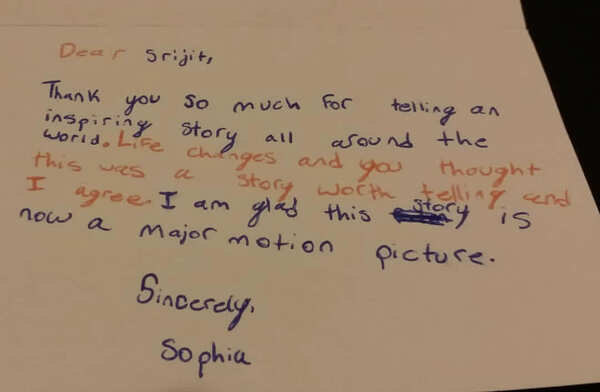 Dear Srijit,
Thank you so much for telling an
inspiring story all around the
world. Life changes and you thought
this was a story worth telling and
I agree. I am glad this story is
now a major motion picture.
Sincerely,
Sophia